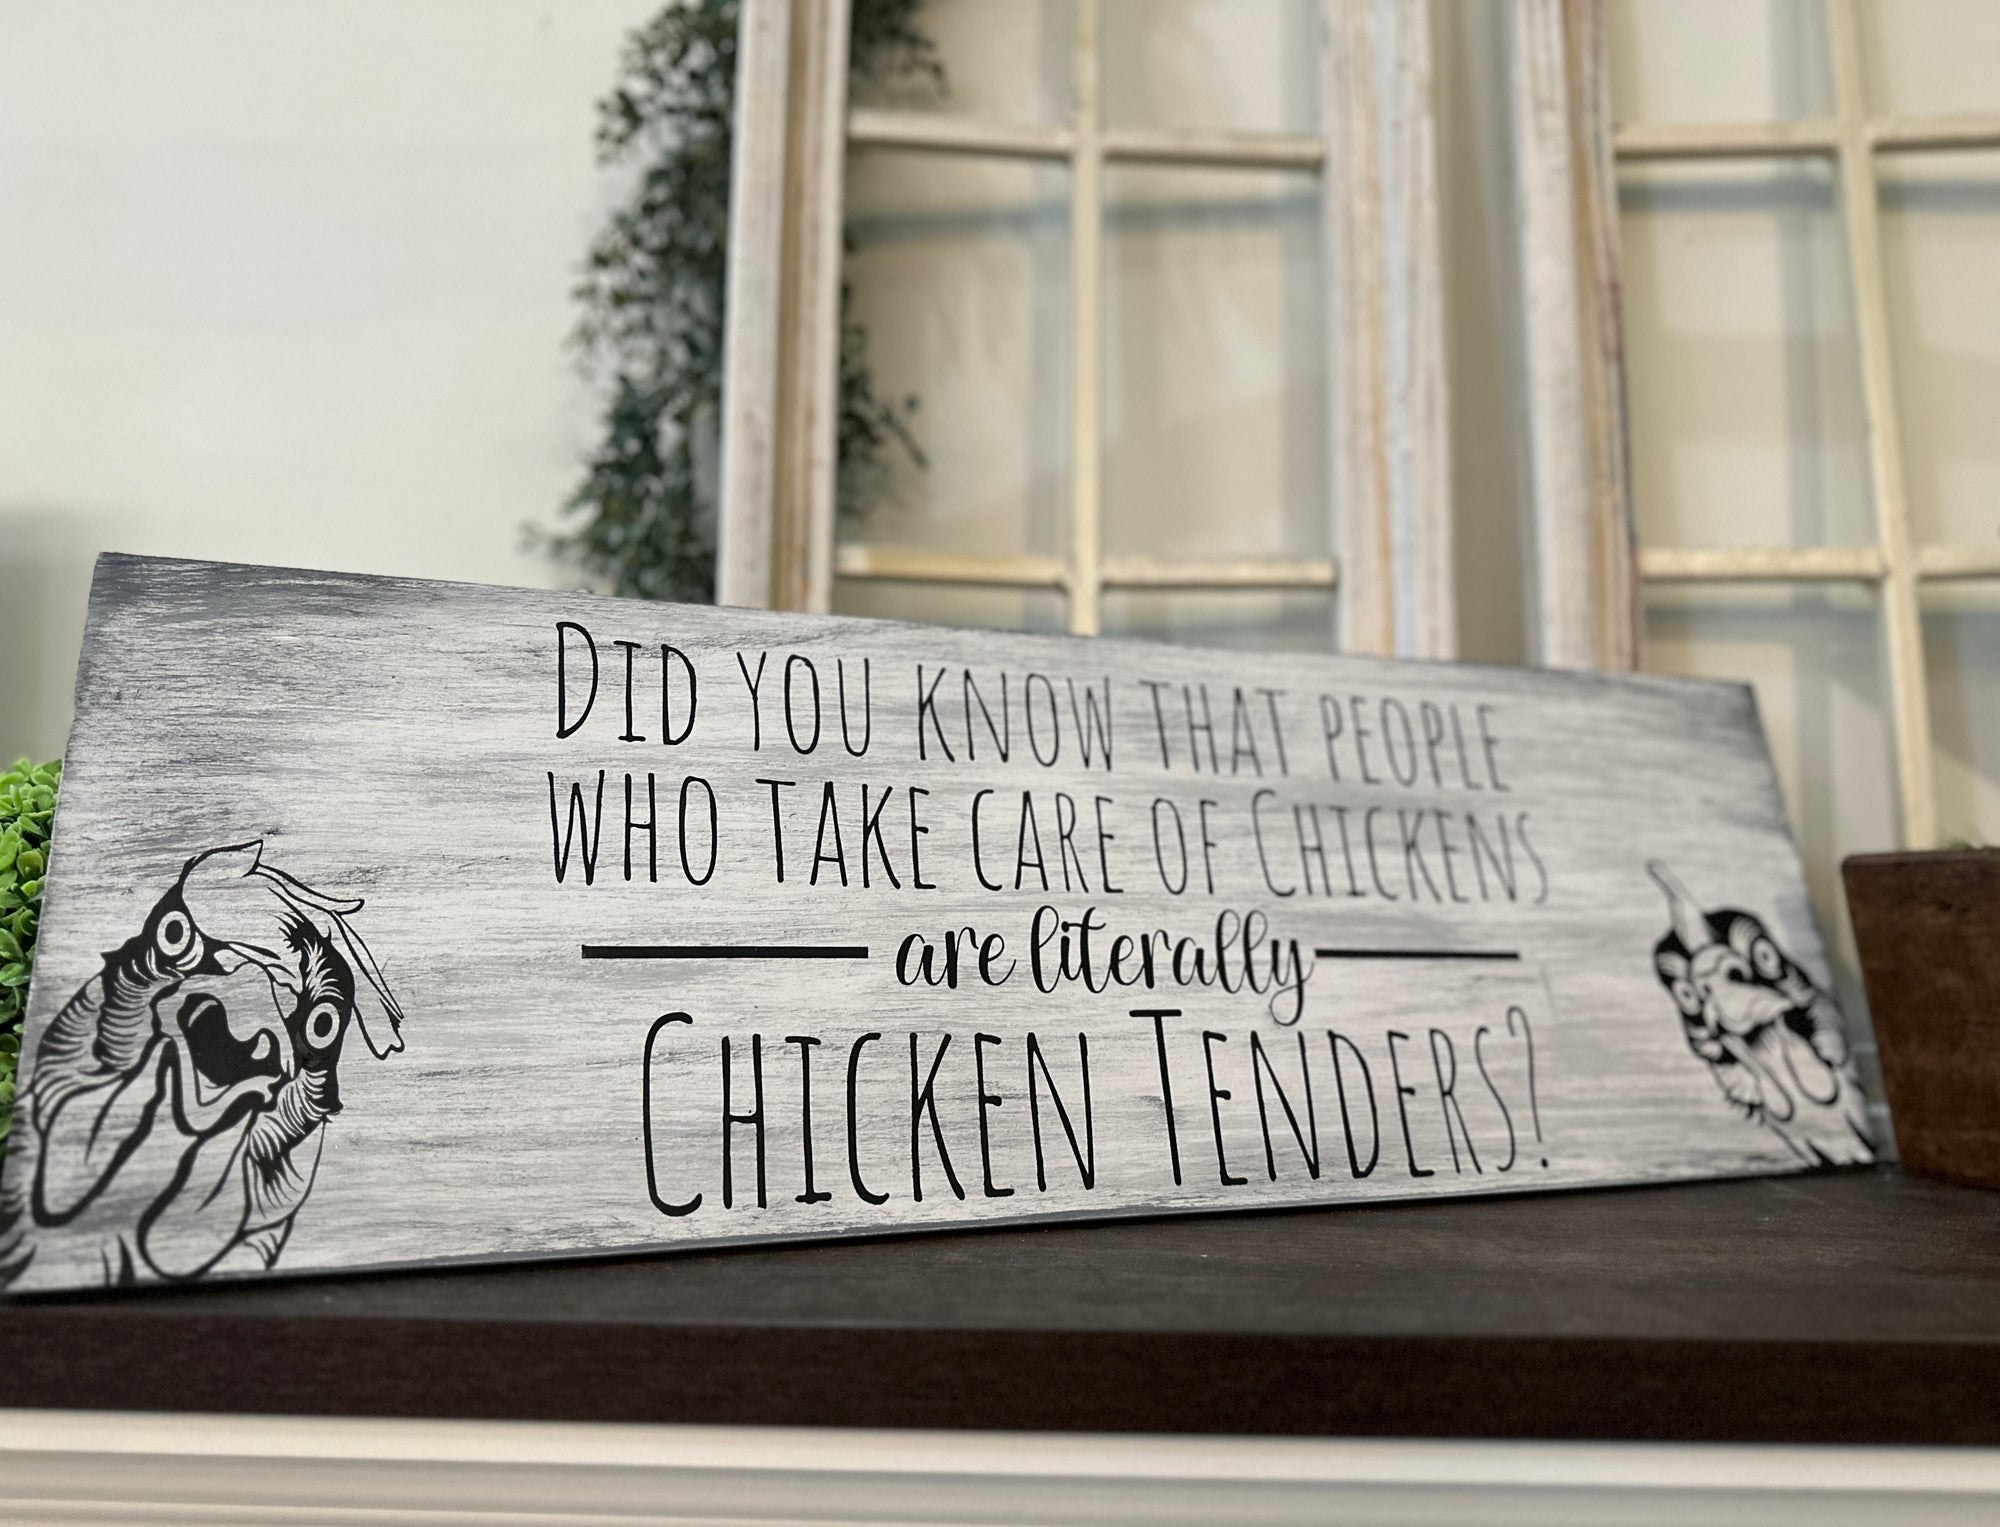 DID YOU KNOW THAT PEOPLE
WHO TAKE CARE OF CHICKENS
are literally
CHICKEN TENDERS?